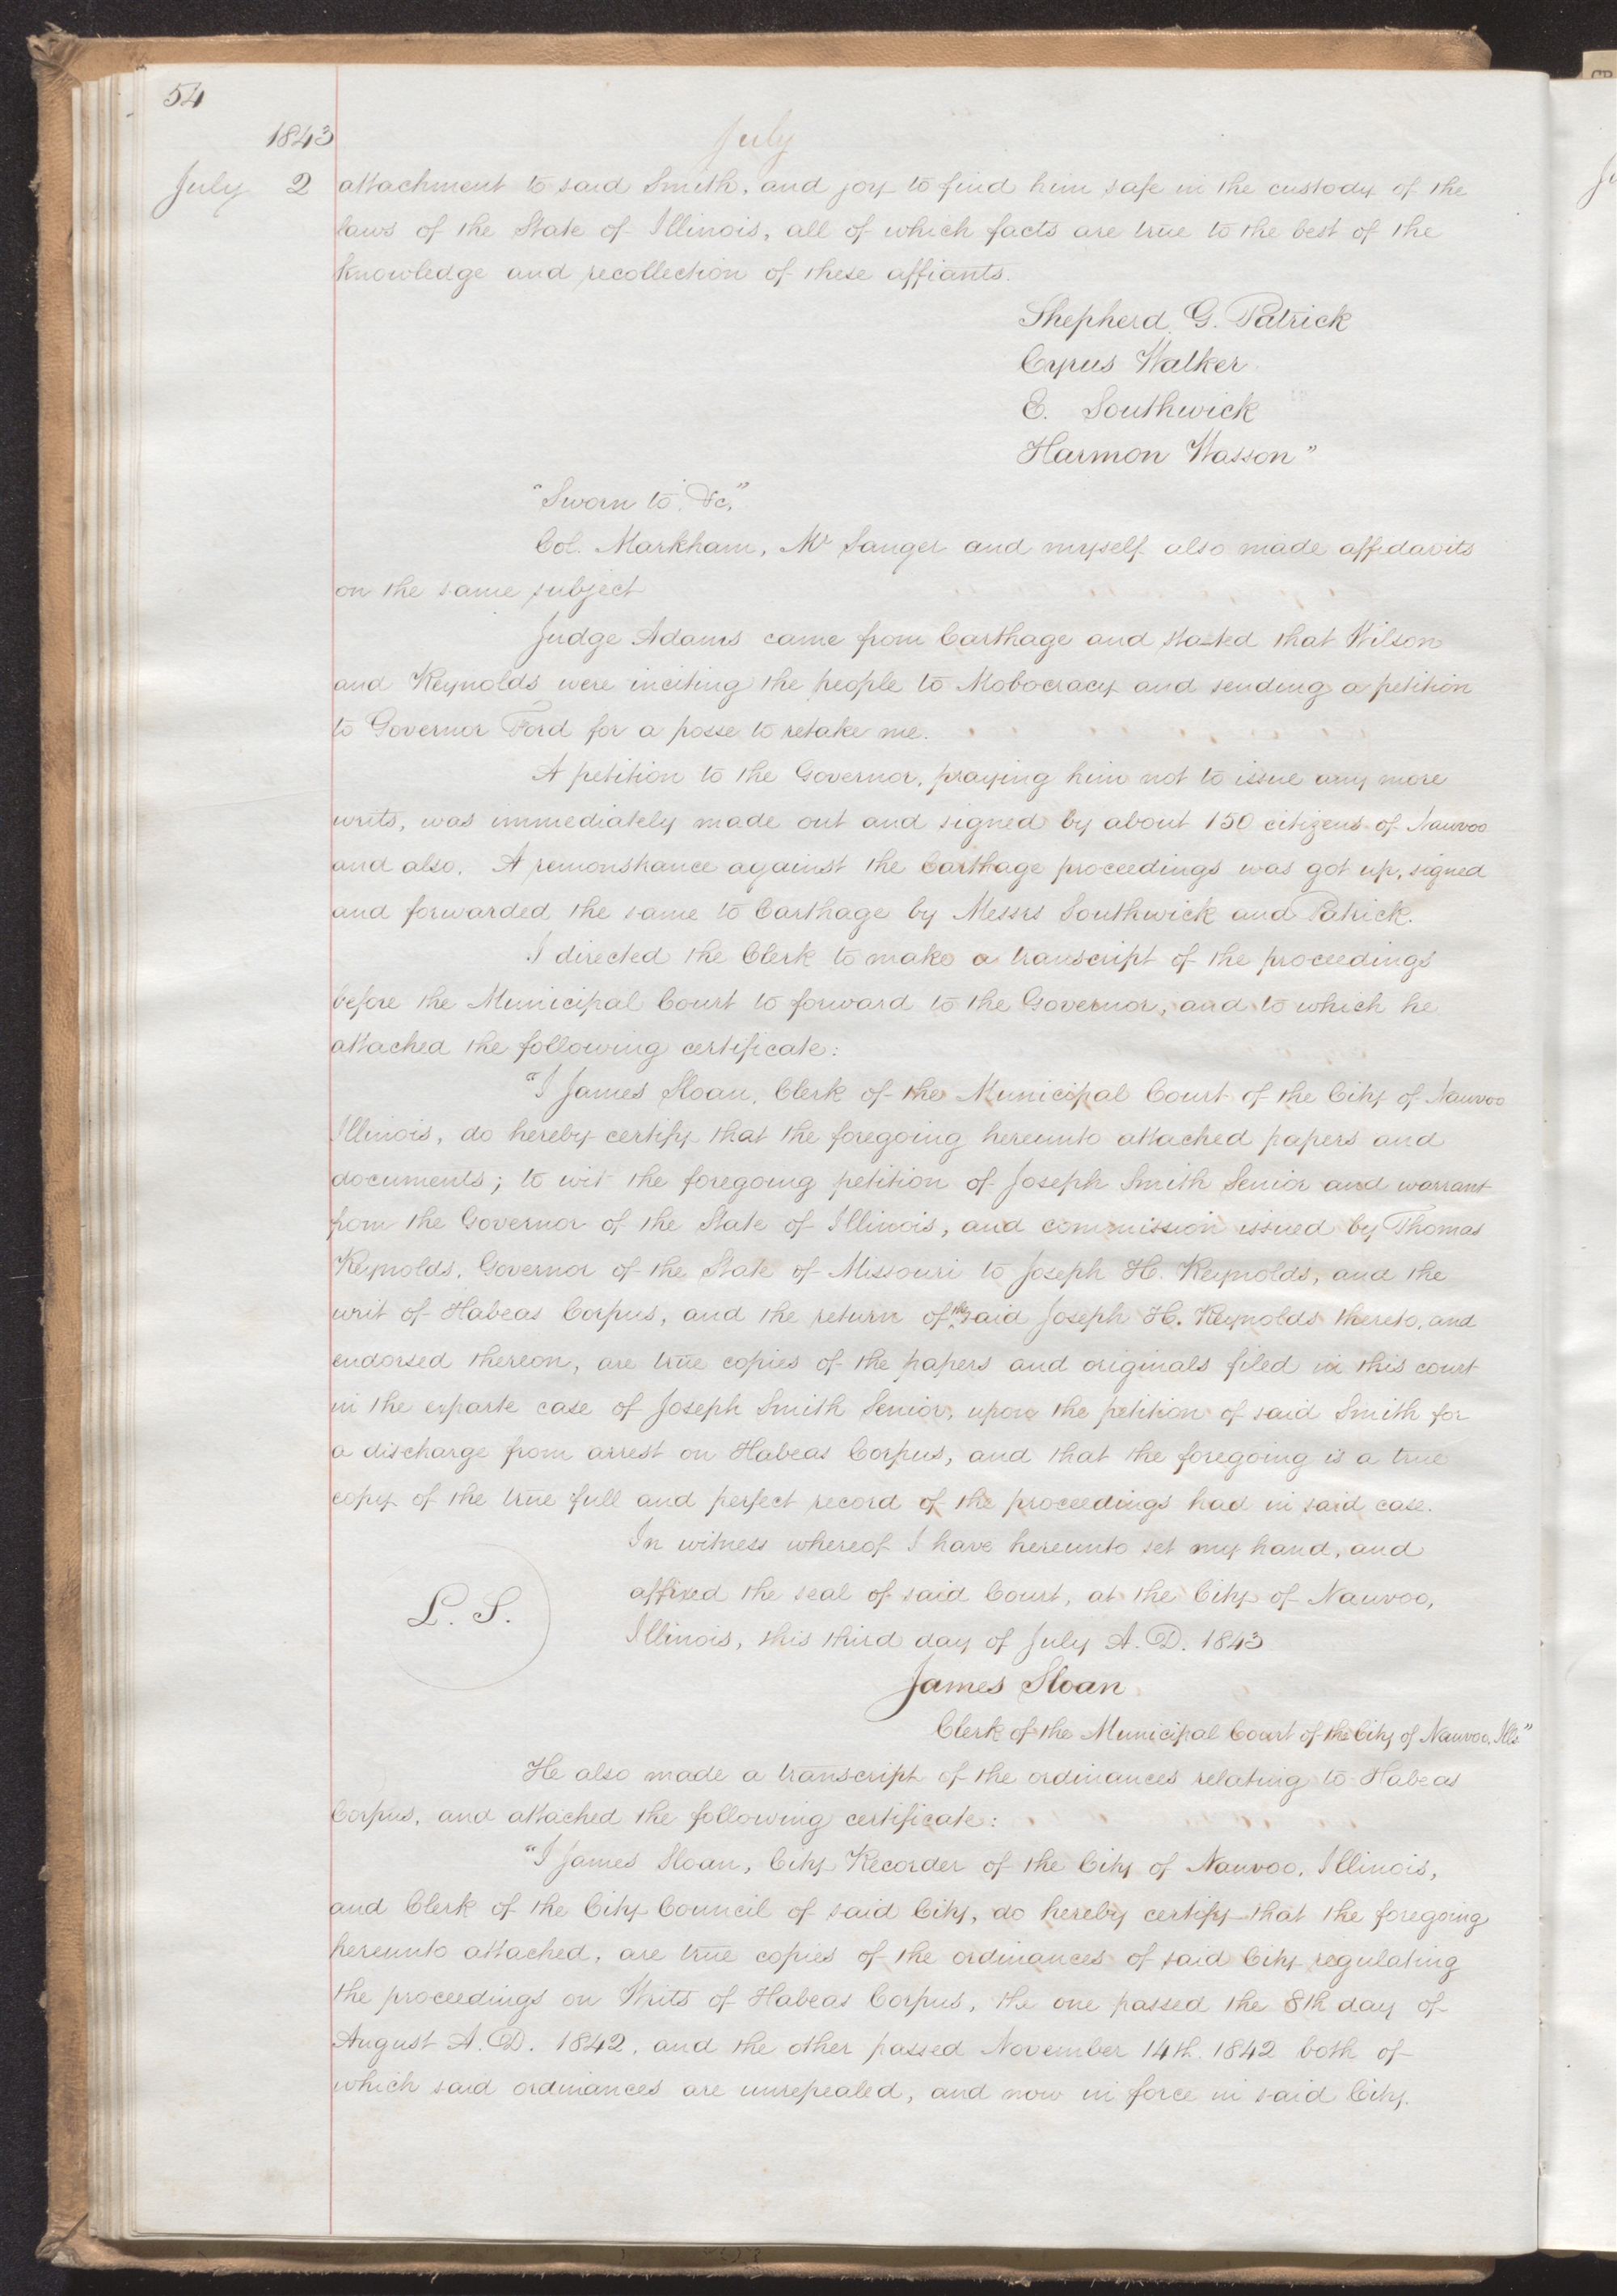 54
1843
July
July 2 attachment to said Smith, and joy to find him safe in the custody of the
laws of the State of Illinois, all of which facts are true to the best of the
knowledge and recollection of these affiants.
Shepherd G. Patrick
Cyrus Walker
E. Southwick
Harmon Wasson"
"Sworn to, &c,"
Col. Markham, Mr Sanger and myself also made affidavits
on the same subject
Judge Adams came from Carthage and stated that Wilson
and Reynolds were inciting the people to Mobocracy and sending a petition
to Governor Ford for a posse to retake me.
A petition to the Governor, praying him not to issue any more
writs, was immediately made out and signed by about 150 citizens of Nauvoo
and also. A remonstrance against the Carthage proceedings was got up, signed
and forwarded the same to Carthage by Messrs Southwick and Patrick.
I directed the Clerk to make a transcript of the proceedings
before the Municipal Court to forward to the Governor, and to which he
attached the following certificate:
"I James Sloan, Clerk of the Municipal Court of the City of Nauvoo
Illinois, do hereby certify that the foregoing hereunto attached papers and
documents; to wit the foregoing petition of Joseph Smith Senior and warrant
from the Governor of the State of Illinois, and commission issued by Thomas
Reynolds, Governor of the State of Missouri to Joseph H. Reynolds, and the
writ of Habeas Corpus, and the return of the said Joseph H. Reynolds thereto, and
endorsed thereon, are true copies of the papers and originals filed in this court
in the exparte case of Joseph Smith Senior, upon the petition of said Smith for
a discharge from arrest on Habeas Corpus, and that the foregoing is a true
copy of the true full and perfect record of the proceedings had in said case.
In witness whereof I have hereunto set my hand, and
affixed the seal of said Court, at the City of Nauvoo,
L. S.
Illinois, this third day of July A. D. 1843
James Sloan
Clerk of the Municipal Court of the City of Nauvoo, Ills"
He also made a transcript of the ordinances relating to Habeas
Corpus, and attached the following certificate:
"I James Sloan, City Recorder of the City of Nauvoo, Illinois,
and Clerk of the City Council of said City, do hereby certify that the foregoing
hereunto attached, are true copies of the ordinances of said City regulating
the proceedings on Writs of Habeas Corpus, the one passed the 8th day of
August A. D. 1842, and the other passed November 14th 1842 both of
which said ordinances are unrepealed, and now in force in said City.